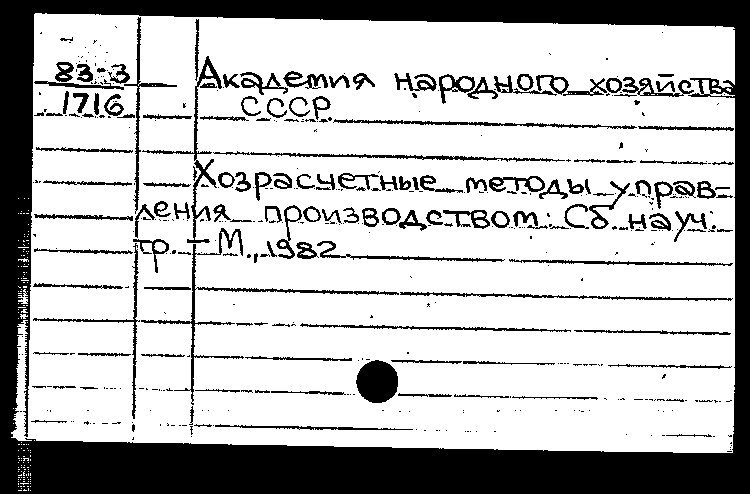 83-3 Академия народного хозяйства
1716 СССР
Хозрасчетные методы управ-
ления производством: Сб. науч.
тр. - М., 1982.